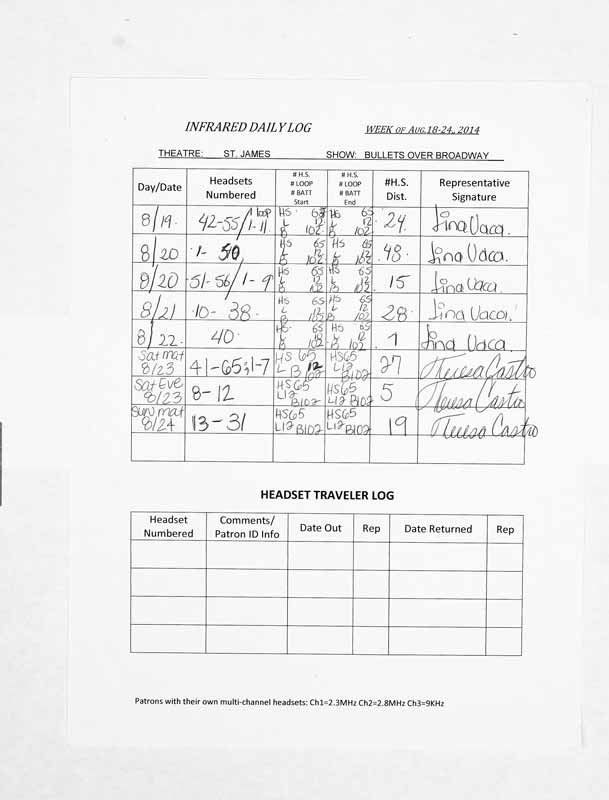 INFRARED DAILY LOG WEEK OF AUG.18-24, 2014
THEATRE: ST. JAMES SHOW: BULLETS OVER BROADWAY
Day/Date Headsets Numbered # H.S. # LOOP # BATT Start # H.S. # LOOP # BATT End #H.S. Dist. Representative Signature
8/19. 42-55/1-11. loop HS. 65 L 12 B 102. HS 65 L 12 B 102. 24. Lina Vaca.
8/20 1- 50 HS 65 L 12 B 102 HS 65 L 12 B 102 48. Lina Vaca.
8/20 51-56/1-9 HS 65 L 12 B 102 HS 65 L 12 B 102 15 Lina Vaca.
8/21 10- 38. HS 65 L 12 B 102 HS 65 L 12 B 102 28 Lina Vaca.
8/22. 40. HS. 65 L 12 B 102 HS 65 L 12 B 102. 1 Lina Vaca.
Sat mat 8/23 41-65;1-7 HS 65 L 12 B 102 HS65 L12 B102 27 Theresa Castro
Sat Eve 8/23 8-12 HS65 L12 B102 HS65 L12 B102 5 Theresa Castro
Sun mat 8/24 13-31 HS65 L12 B102 HS65 L12 B102 19 Theresa Castro
HEADSET TRAVELER LOG
Headset Numbered Comments/ Patron ID Info Date Out Rep Date Returned Rep
Patrons with their own multi-channel headsets: Ch1=2.3MHz Ch2=2.8MHz Ch3=9KHz